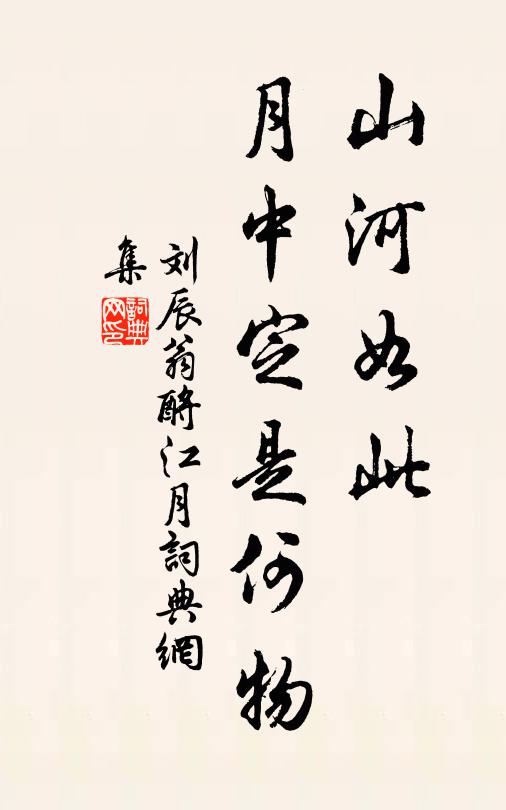 山河如此
月中定是何物
刘辰翁酹江月詞典網
集
詞典网印